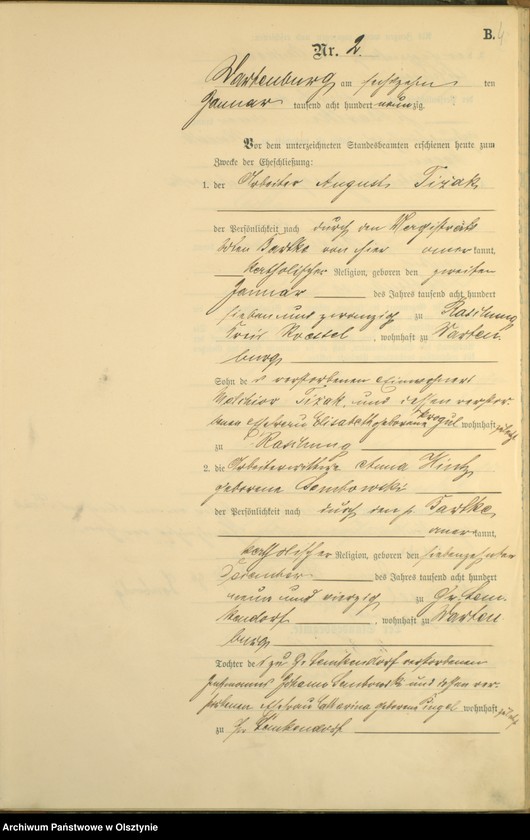 B. 4
Nr. 2.
Wartenburg am sechszehn ten
Januar tausend acht hundert neunzig.
Vor dem unterzeichneten Standesbeamten erschienen heute zum
Zwecke der Eheschließung:
1. der Arbeiter August Tizak
der Persönlichkeit nach durch den Magistrats
boten Bartke von hier anerkannt,
katholischer Religion, geboren den zweiten
Januar des Jahres tausend acht hundert
sieben und zu
Kreis Roessel, wohnhaft zu Warten
burg
Sohn des verstorbenen Einwohners
Melchior Tizak und dessen verstor
benen Ehefrau Elisabeth geborene wohnhaft zuletzt
zu
2. die Arbeiterwittwe Anna Hintz
geborene Lembowski
der Persönlichkeit nach durch den p. Bartke
anerkannt,
katholischer Religion, geboren den siebenzehnten
Dezember des Jahres tausend acht hundert
neun und vierzig zu Gr. Lem
kendorf, wohnhaft zu Warten
burg
Tochter des zu Gr. Lemkendorf verstorbenen
Johann Lembowski und dessen ver
storbenen Ehefrau Catharina geborene wohnhaft zuletzt
zu Gr. Lemkendorf
Archiwum Państwowe w Olsztynie